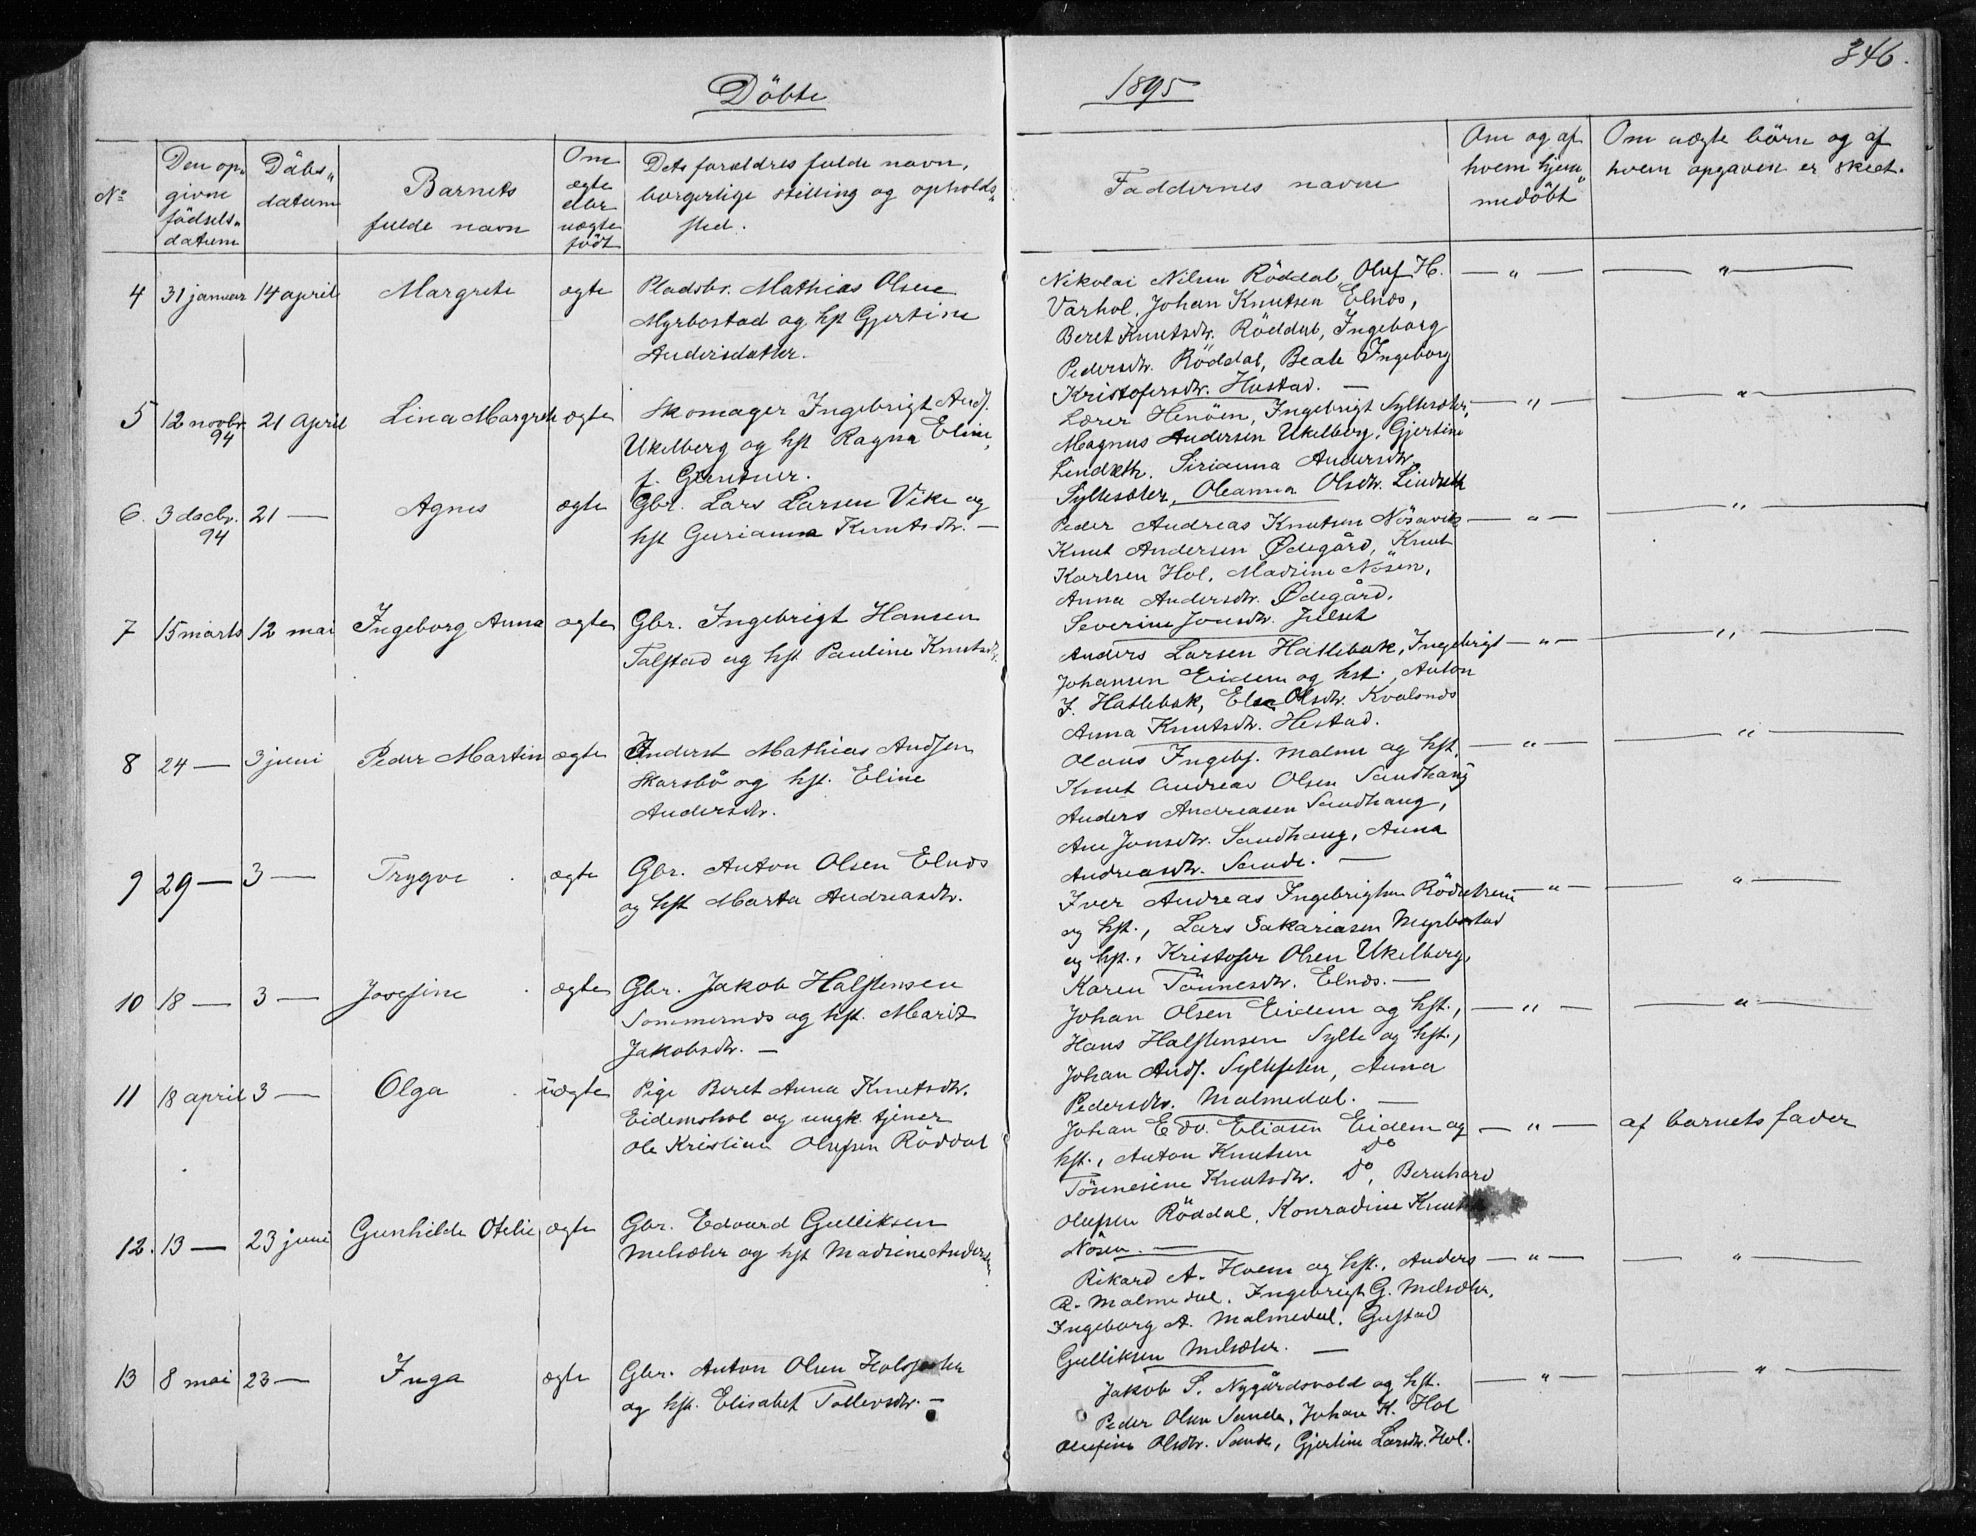 346.
Döbte
1895
No
Den op-
givne
födsels-
datum
Dåbs-
datum
Barnets
fulde navn
Om
ægte
eller
uægte
födt
Dets forældres fulde navn,
borgerlige stilling og opholds-
sted.
Faddernes navne
Om og af
hvem hjem-
medöbt
Om uægte börn og af
hvem opgaven er skeet.
4 31 januar 14 april Margrete ægte Pladsbr. Mathias Olsen
Myrbostad og hst Gjertine
Andersdatter.
Nikolai Nilsen Röddal, Oluf H.
Varhol, Johan Knutsen Elnes,
Beret Knutsdtr. Röddal, Ingeborg
Pedersdtr. Röddal, Beate Ingeborg
Kristofersdtr. Hustad. —
— " — — " —
5 12 novbr. 94 21 April Lina Margrete ægte Skomager Ingebrigt Andr.
Ukelberg og hst Ragna Eline,
f. Gentner.
Lærer Henöen, Ingebrigt Syltesæter,
Magnus Andersen Ukelberg, Gjertine
Lindseth, Sirianna Andersdtr.
Syltesæter, Oleanna Olsdtr. Lindseth
— " — — " —
6. 3 decbr. 94 21 — Agnes ægte Gbr. Lars Larsen Vike og
hst Gurianna Knutsdtr. —
Peder Andreas Knutsen Nösavik
Knut Andersen Ødegård, Knut
Karlsen Hol, Madsine Nösen,
Anna Andersdtr. Ødegård,
Severine Jonsdtr. Julset
— " — — " —
7 15 marts 12 mai Ingeborg Anna ægte Gbr. Ingebrigt Hansen
Talstad og hst Pauline Knutsdtr.
Anders Larsen Hatlebak, Ingebrigt
Johansen Eidem og hst., Anton
I. Hatlebak, Else Olsdtr. Kvalsnes
Anna Knutsdtr. Hestad.
— " — — " —
8 24 — 3 juni Peder Martin ægte Inderst Mathias Andsen
Skarsbö og hst. Eline
Andersdtr.
Olaus Ingebr. Malme og hst.
Knut Andreas Olsen Sandhaug
Anders Andreasen Sandhaug,
Ane Jonsdtr. Sandhaug, Anna
Andreasdtr. Sande. —
— " — — " —
9 29 — 3 — Trygve ægte Gbr. Anton Olsen Elnes
og hst Marta Andreasdtr.
Iver Andreas Ingebrigtsen Rödseteren
og hst., Lars Sakariasen Myrbostad
og hst., Kristofer Olsen Ukelberg,
Karen Tönnesdtr. Elnes. —
— " — — " —
10 18 — 3 — Josefine ægte Gbr. Jakob Halstensen
Sommernes og hst. Marit
Jakobsdtr. —
Johan Olsen Eidem og hst.,
Hans Halstensen Sylte og hst.,
Johan Andr. Sylteseter, Anna
Pedersdtr. Malmedal. —
— " — — " —
11 18 april 3 — Olga uægte Pige Beret Anna Knutsdtr.
Eidemshol og ungk. tjener
Ole Kristian Olufsen Röddal
Johan Edv. Eliasen Eidem og
hst., Anton Knutsen Do
Tönnesine Knutsdtr. Do, Bernhard
Olufsen Röddal, Konradine Knutsd
Nösen. —
— " — af barnets fader
12. 13 — 23 juni Gunhilde Otelie ægte Gbr. Edvard Gulliksen
Melsæter og hst Madsine Andersdtr
Rikard A. Hoem og hst., Anders
A. Malmedal, Ingebrigt G. Melsæter,
Ingeborg A. Malmedal, Gustad
Gulliksen Melsæter. —
— " — — " —
13 8 mai 23 — Inga ægte Gbr. Anton Olsen
og hst. Elisabet Tollevsdtr. —
Jakob S. Nygårdsvold og hst.
Peder Olsen Sande, Johan K. Hol
Olufine Olsdtr. Sande, Gjertine Larsdtr. Hol.
— " — — " —